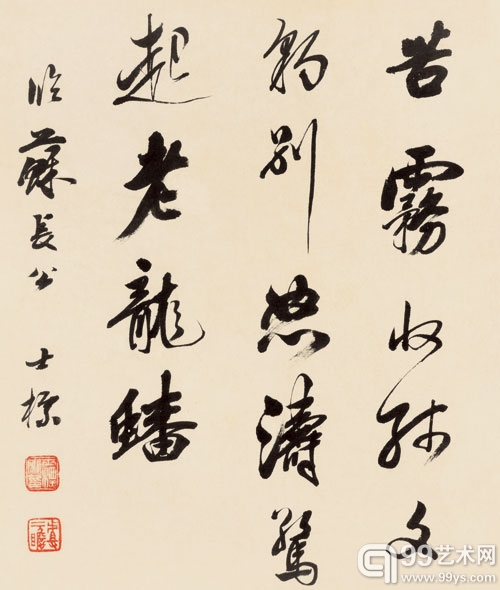 苦霧收殘文
豹別怒濤驚
起老龍蟠
臨蘇長公 士標
99艺术网
www.99ys.com